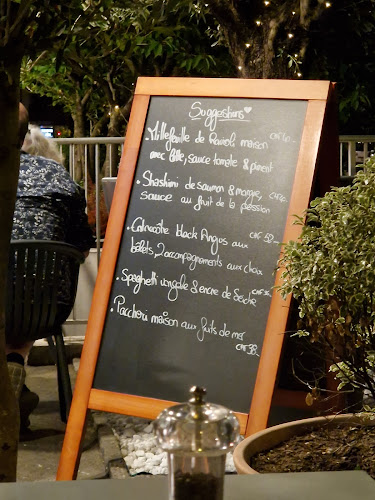 Suggestions
• Millefeuille de Ravioli maison CHF
avec bille, sauce tomate & piment
• Shashimi de saumon & mangue, CHF
sauce au fruit de la passion
• Entrecôte black Angus aux CHF 52.-
bolets, 2 accompagnements aux choix
• Spaghetti vongole & encre de seiche CHF
• Paccheri maison aux fruits de mer
CHF 38.-